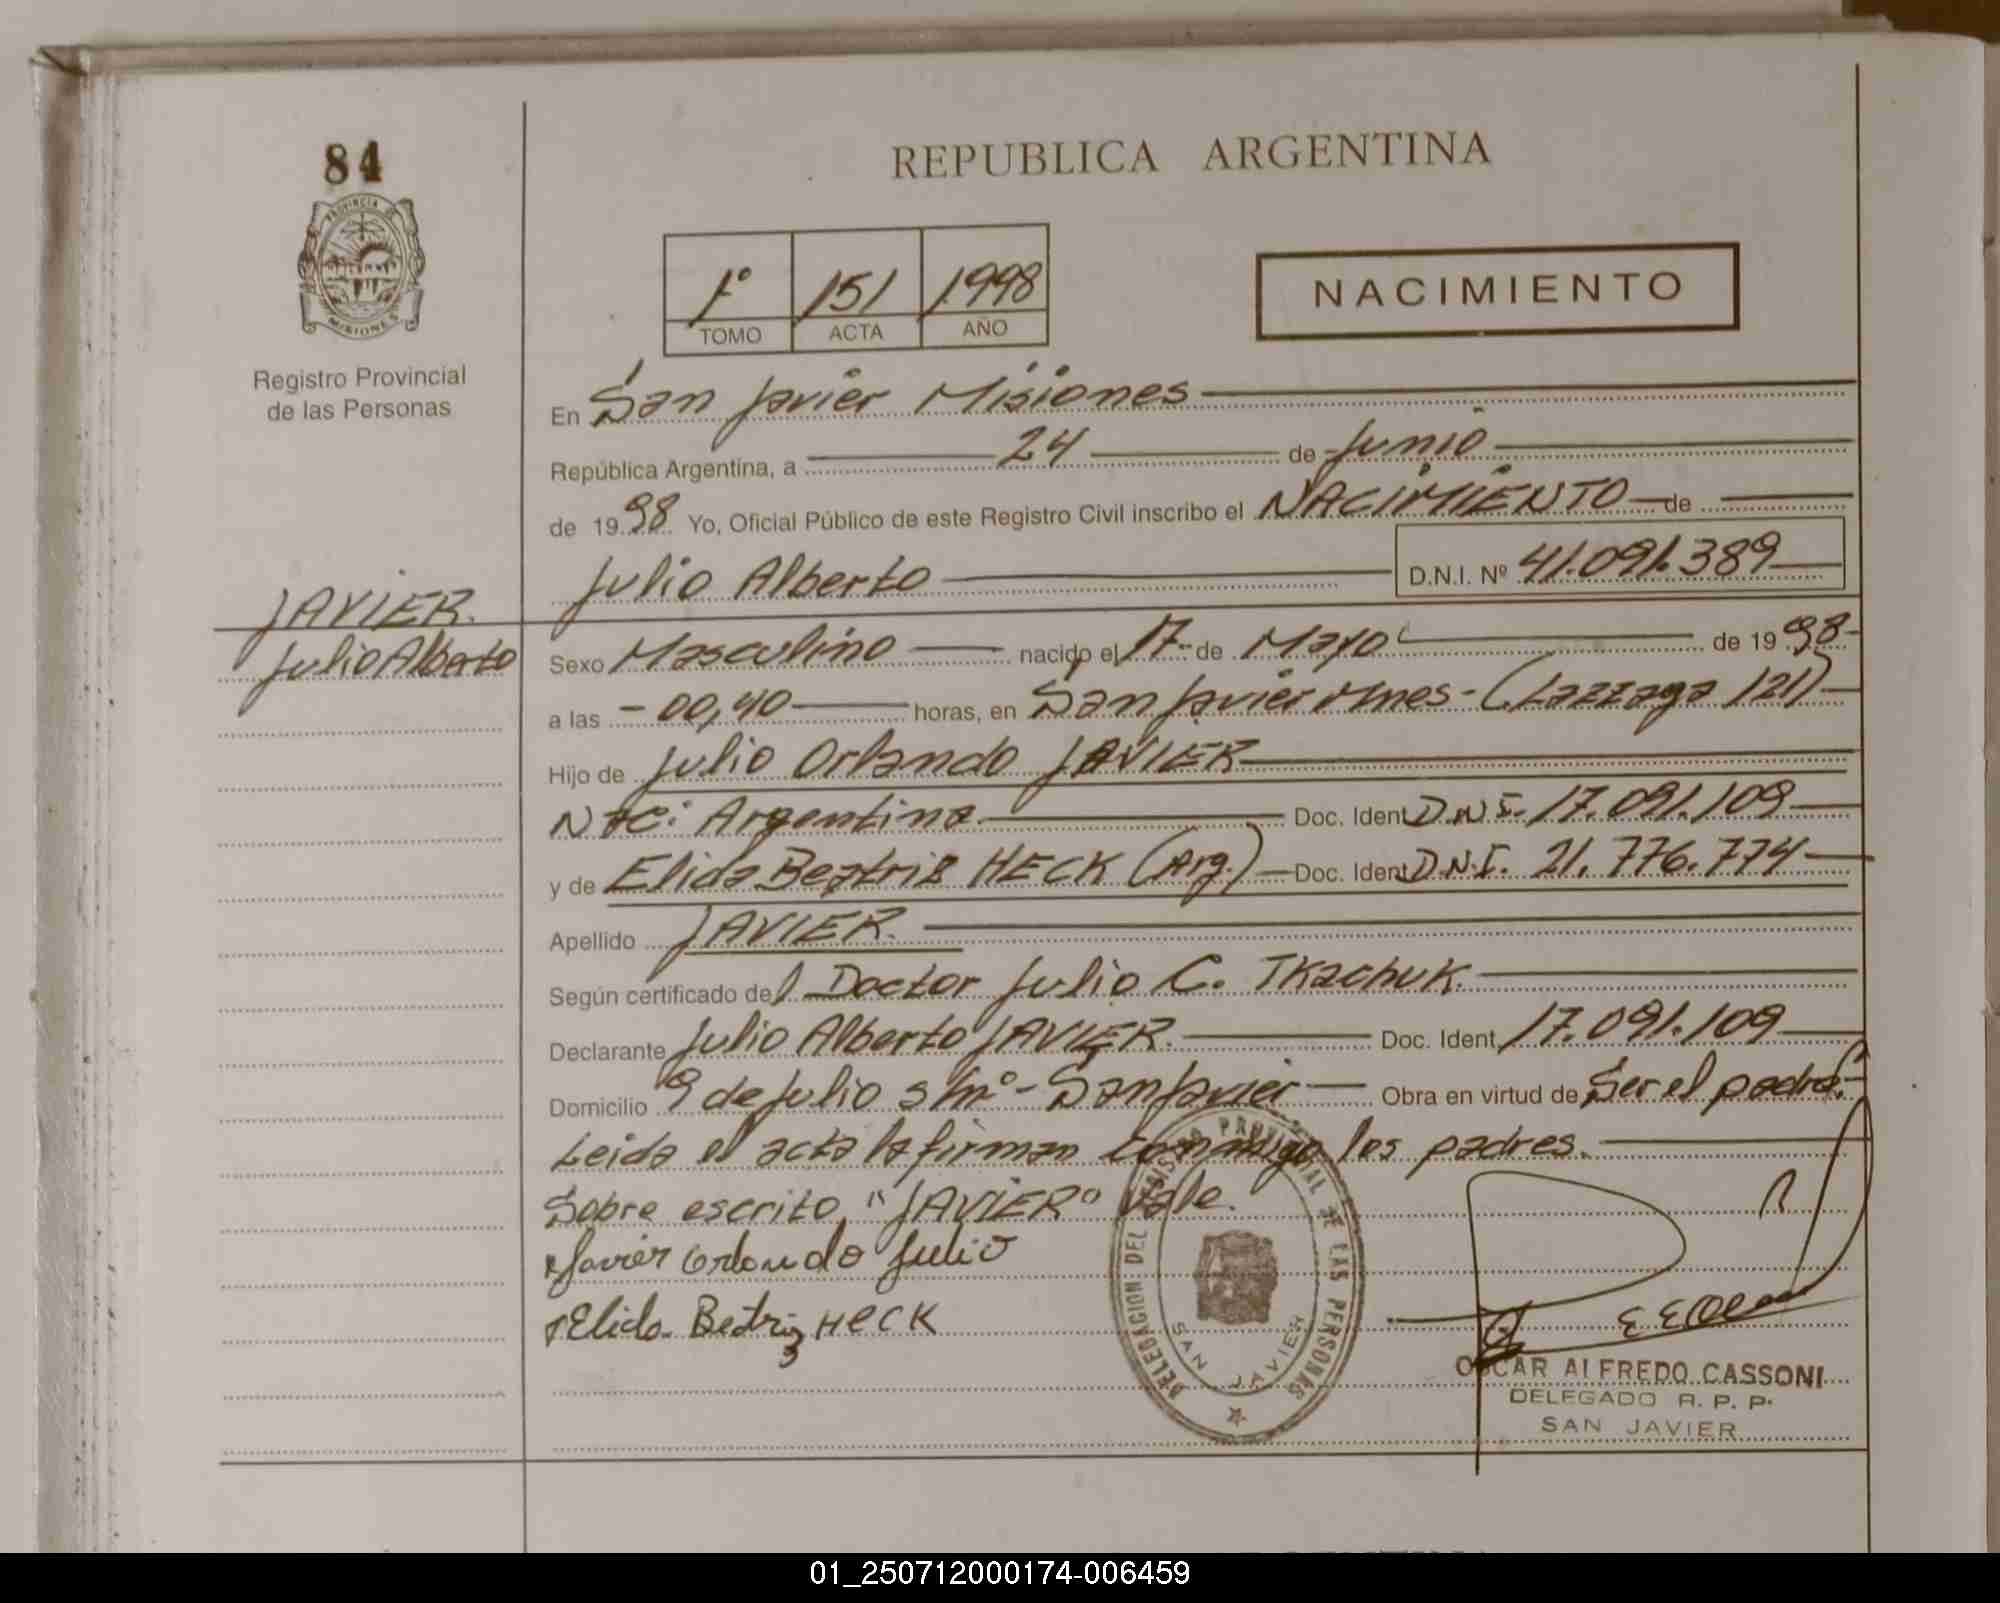 84
PROVINCIA DE
MISIONES
Registro Provincial
de las Personas
REPUBLICA ARGENTINA
1º 151 1998
TOMO ACTA AÑO
NACIMIENTO
En San Javier Misiones
República Argentina, a 24 de Junio
de 1998 Yo, Oficial Público de este Registro Civil inscribo el NACIMIENTO de
Julio Alberto D.N.I. Nº 41.091.389
JAVIER.
Julio Alberto
Sexo Masculino nacido el 17 de Mayo de 1998
a las 00,40 horas, en San Javier Mnes - (Lazzaga 121)
Hijo de Julio Orlando JAVIER
Nac: Argentina Doc. Ident D.N.I. 17.091.109
y de Elida Beatriz HECK (Arg.) Doc. Ident D.N.I. 21.776.774
Apellido JAVIER.
Según certificado del Doctor Julio C. Tkachuk.
Declarante Julio Alberto JAVIER. Doc. Ident. 17.091.109
Domicilio 9 de Julio s/nº - San Javier Obra en virtud de Ser el padre.
Leida el acta la firman conmigo los padres.
Sobre escrito "JAVIER" Vale.
Javier Orlando Julio
Elida Beatriz HECK
DELEGACION DEL REGISTRO PROVINCIAL DE LAS PERSONAS
SAN JAVIER
OSCAR ALFREDO CASSONI
DELEGADO R. P. P.
SAN JAVIER
01_250712000174-006459